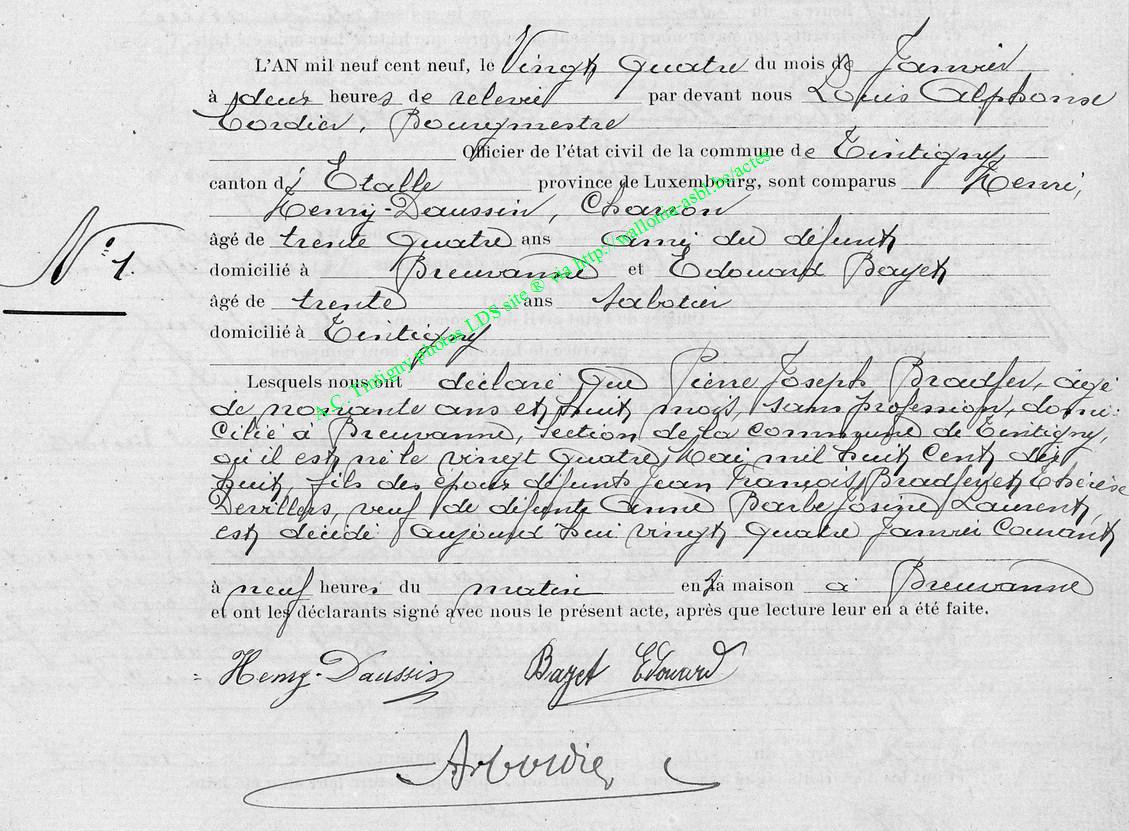 L'AN mil neuf cent neuf, le Vingt quatre du mois de Janvier
à deux heures de relevée par devant nous Louis Alphonse
Cordier, Bourgmestre
Officier de l'état civil de la commune de Tintigny,
canton d' Etalle province de Luxembourg, sont comparus Henri,
Henry-Daussin, Charron
N° 1.
âgé de trente quatre ans ami du défunt
domicilié à Breuvanne et Edouard Bayet
âgé de trente ans sabotier
domicilié à Tintigny
A.C. Tintigny photos LDS site ® via http://wallonia-asbl.be/actes
Lesquels nous ont déclaré que Pierre Joseph Bradfer, âgé
de nonante ans et huit mois, sans profession, domi-
cilié à Breuvanne, section de la commune de Tintigny,
où il est né le vingt quatre Mai mil huit cent dix
huit, fils des époux défunts Jean François Bradfer et Thérèse
Devillers, veuf de défunte Anne Barbe Josine Laurent,
est décédé aujourd'hui vingt quatre Janvier Courant
à neuf heures du matin en sa maison à Breuvanne
et ont les déclarants signé avec nous le présent acte, après que lecture leur en a été faite.
Henry-Daussin Bayet Edouard